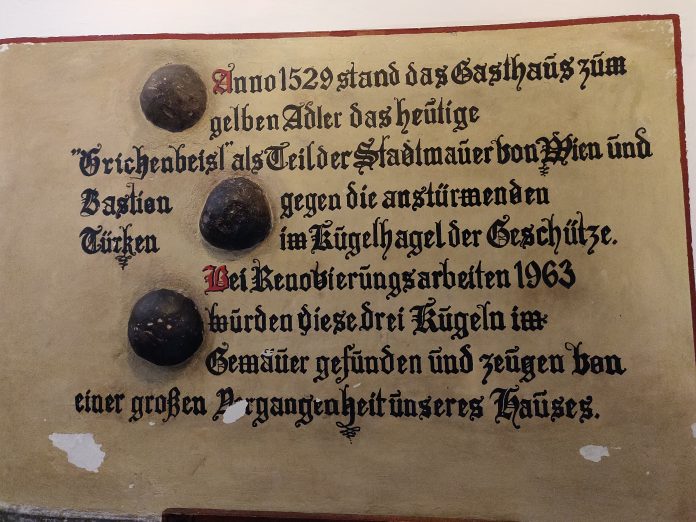 Anno 1529 stand das Gasthaus zum
gelben Adler das heutige
"Grichenbeisl" als Teil der Stadtmauer von Wien und
Bastion gegen die anstürmenden
Türken im Kugelhagel der Geschütze.
Bei Renovierungsarbeiten 1963
wurden diese drei Kugeln im
Gemäuer gefunden und zeugen von
einer großen Vergangenheit unseres Hauses.